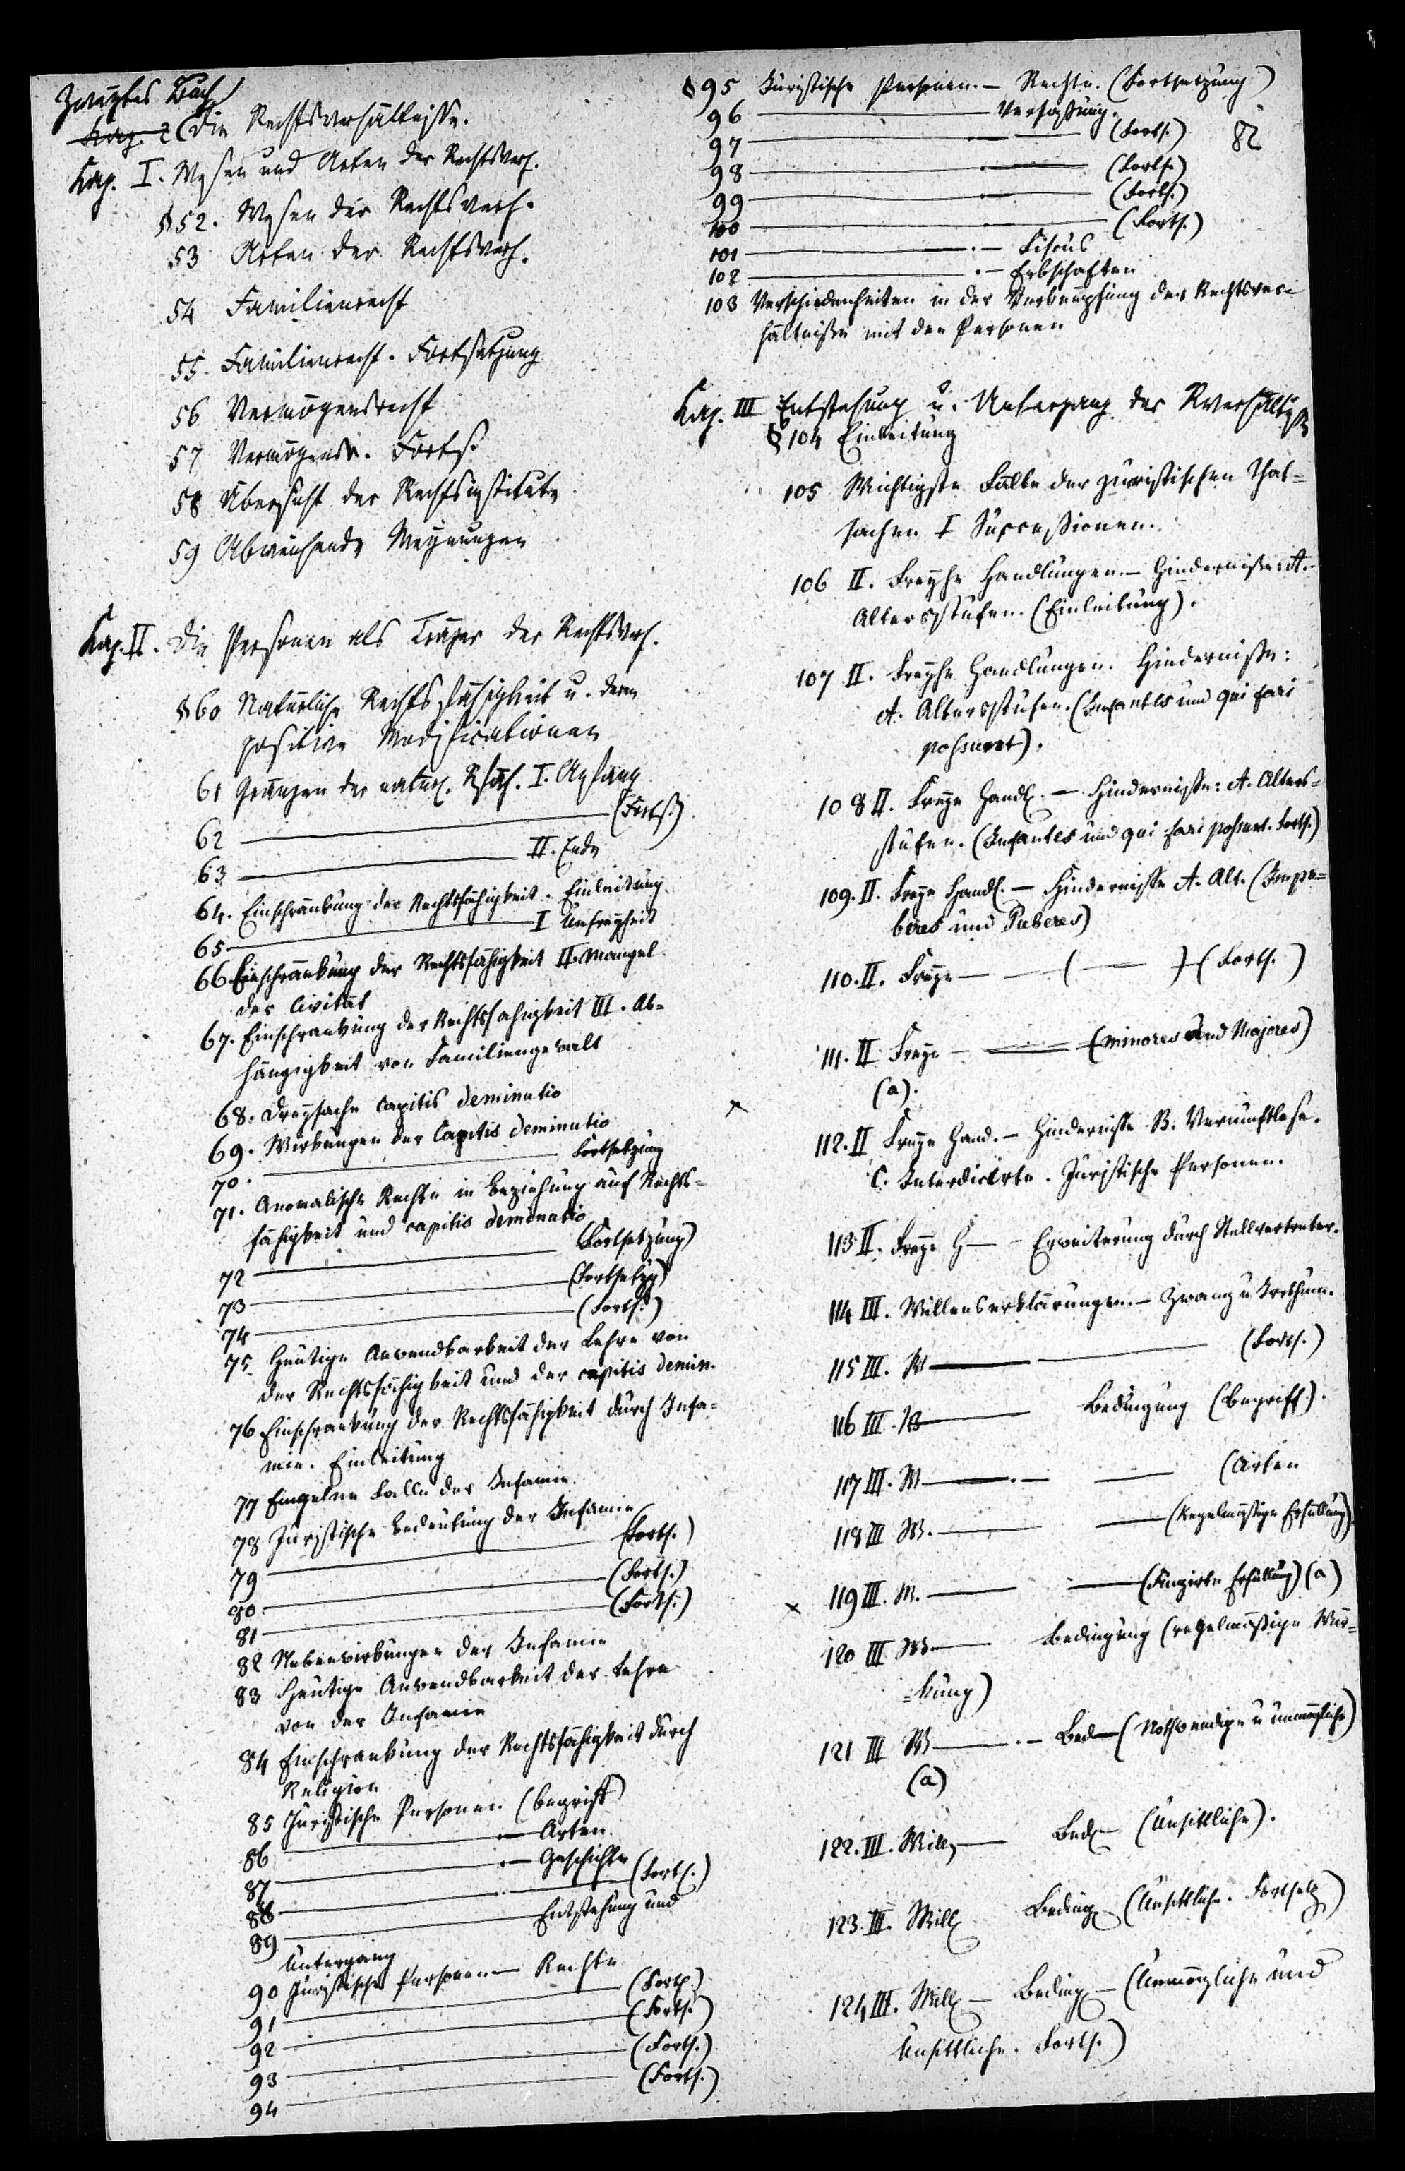 Zweytes Buch
Kap. 2 Die Rechtsverhältnisse.
Kap. I. Wesen und Arten der Rechtsverh.
§ 52. Wesen der Rechtsverh.
53 Arten der Rechtsverh.
54 Familienrecht
55. Familienrecht. Fortsetzung
56 Vermögensrecht
57 Vermögensr. Forts.
58 Übersicht der Rechtsinstitute
59 Abweichende Meynungen
Kap. II. Die Personen als Träger der Rechtsverh.
§ 60 Natürliche Rechtsfähigkeit u. deren
positive Modificationen
61 Gränzen der natürl. Rfäh. I. Anfang
62 ——— (Forts.)
63 ——— II. Ende
64. Einschränkung der Rechtsfähigkeit. Einleitung
65 ——— I Unfreyheit
66 Einschränkung der Rechtsfähigkeit II. Mangel
der Civität
67. Einschränkung der Rechtsfähigkeit III. Ab=
hängigkeit von Familiengewalt
68. Dreyfache capitis deminutio
69. Wirkungen der Capitis deminutio
70. ——— Fortsetzung
71. Anomalische Rechte in Beziehung auf Rechts=
fähigkeit und capitis deminutio
72 ——— (Fortsetzung)
73 ——— (Fortsetzg)
74 ——— (Forts.)
75 Heutige Anwendbarkeit der Lehre von
der Rechtsfähigkeit und der capitis demin.
76 Einschränkung der Rechtsfähigkeit durch Infa=
mie. Einleitung
77 Einzelne Fälle der Infamie
78 Juristische Bedeutung der Infamie
79 ——— (Forts.)
80. ——— (Forts.)
81 ——— (Forts.)
82 Nebenwirkungen der Infamie
83 Heutige Anwendbarkeit der Lehre
von der Infamie
84 Einschränkung der Rechtsfähigkeit durch
Religion
85 Juristische Personen (Begriff)
86 ——— . — Arten
87 ——— . — Geschichte
88 ——— (Forts.)
89 ——— Entstehung und
Untergang
90 Juristische Personen — Rechte
91 ——— (Forts.)
92 ——— (Forts.)
93 ——— (Forts.)
94 ——— (Forts.)
§ 95 Juristische Personen. — Rechte. (Fortsetzung)
96 ——— Verfassung.
97 ——— . — (Forts.)
82
98 ——— . — (Forts.)
99 ——— . — (Forts.)
100 ——— (Forts.)
101 ——— . — Fiscus
102 ——— . — Erbschaften
103 Verschiedenheiten in der Verknüpfung der Rechtsver=
hältnisse mit den Personen
Kap. III Entstehung u. Untergang der Rverhältnisse
§ 104 Einleitung
105 Wichtigste Fälle der juristischen That=
sachen I Successionen.
106 II. Freyhe Handlungen. — Hindernisse: A.
Altersstufen. (Einleitung).
107 II. Freyhe Handlungen. Hindernisse:
A. Altersstufen. (Infantes und qui fari
possunt).
108 II. Freye Handl. — Hindernisse: A. Alters=
stufen. (Infantes und qui fari possunt. Forts.)
109. II. Freye Handl. — Hindernisse A. Alt. (Impu=
beres und Puberes)
110. II. Freye — — ( — ) (Forts.)
111. II Freye — — (Minores und Majores)
(a).
x 112. II Freye Hand. — Hindernisse B. Vernunftlose.
C. Interdicirte. Juristische Personen.
113 II. Freye H — — Erweiterung durch Stellvertreter.
114 III. Willenserklärungen. — Zwang u Irrthum.
115 III. W ——— (Forts.)
116 III. W ——— Bedingung (Begriff).
117 III. W ——— . — — (Arten
118 III W. ——— — (Regelmäßige Erfüllung).
x 119 III. W. ——— — (Fingirte Erfüllung) (a)
120 III W ——— Bedingung (regelmäßige Wir=
=kung)
121 III W ——— . — Bed — (Nothwendige u unmögliche)
(a)
122. III. Will — Bed — (Unsittliche).
123. III. Will Beding — (Unsittliche. Fortsetz)
124 III. Will — Beding — (Unmögliche und
Unsittliche. Forts.)